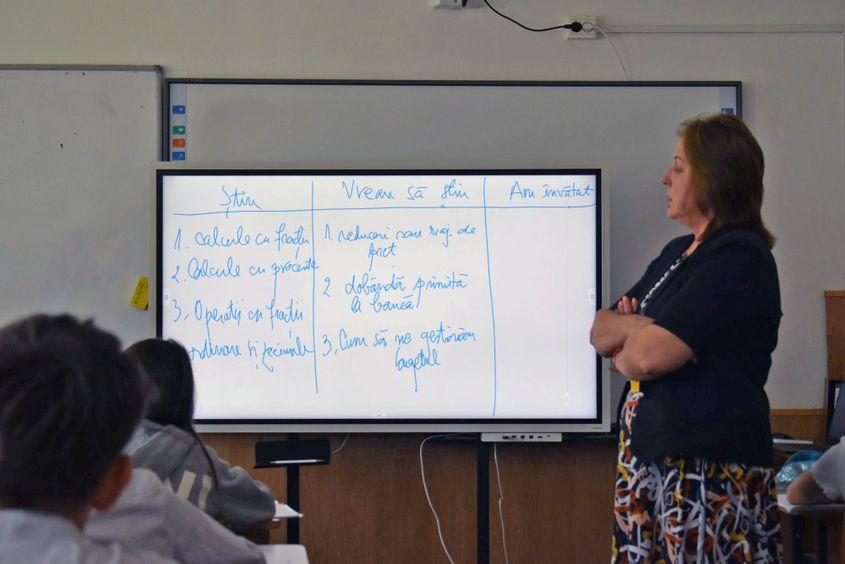 Știu
Vreau să știu
Am învățat
1. Calcule cu fracții
2. Calcule cu procente
3. Operații cu fracții
ordinare și zecimale
1. reduceri sau maj. de
preț
2. dobândă primită
la bancă
3. Cum să ne gestionăm
bugetul